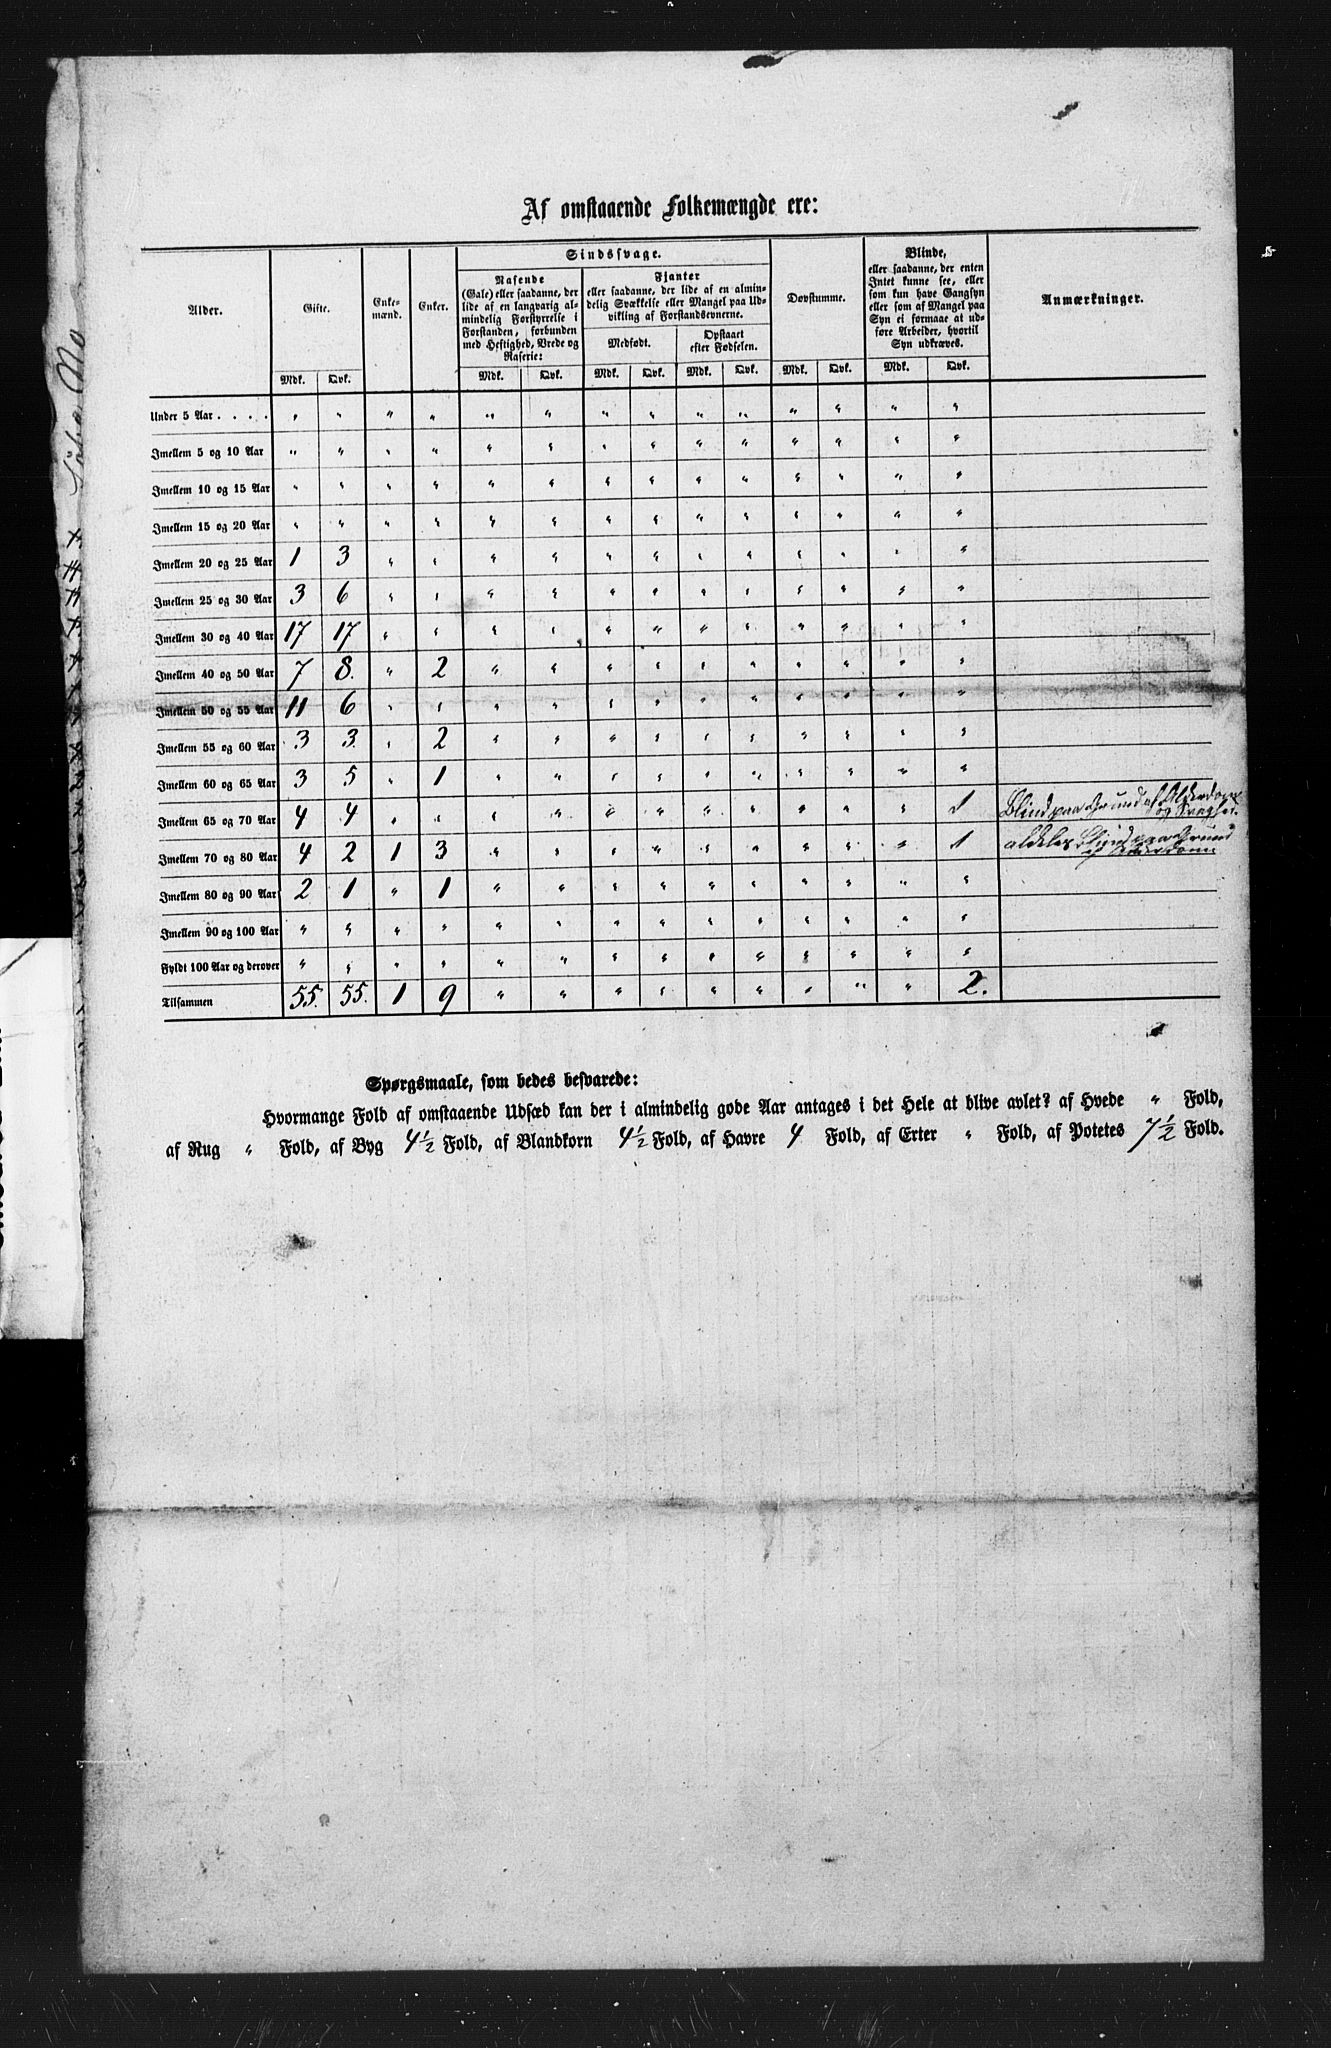 Af omstaaende Folkemængde ere:
Alder. Gifte. Enke-mænd. Enker. Sindssvage. Døvstumme. Blinde, eller saadanne, der enten Intet kunne see, eller som kun have Gangsyn eller som af Mangel paa Syn ei formaae at udføre Arbeider, hvortil Syn udkræves. Anmærkninger.
Rasende (Gale) eller saadanne, der lide af en langvarig almindelig Forstyrrelse i Forstanden, forbunden med Heftighed, Vrede og Raserie:
Fjanter eller saadanne, der lide af en almindelig Svækkelse eller Mangel paa Udvikling af Forstandsevnerne.
Medfødt. Opstaaet efter Fødselen.
Mdk. Qvk. Mdk. Qvk. Mdk. Qvk. Mdk. Qvk. Mdk. Qvk. Mdk. Qvk.
Under 5 Aar . . . . " " " " " " " " " " " " " "
Imellem 5 og 10 Aar " " " " " " " " " " " " " "
Imellem 10 og 15 Aar " " " " " " " " " " " " " "
Imellem 15 og 20 Aar " " " " " " " " " " " " " "
Imellem 20 og 25 Aar 1 3 " " " " " " " " " " " "
Imellem 25 og 30 Aar 3 6 " " " " " " " " " " " "
Imellem 30 og 40 Aar 17 17 " " " " " " " " " " " "
Imellem 40 og 50 Aar 7 8. " 2 " " " " " " " " " "
Imellem 50 og 55 Aar 11 6 " " " " " " " " " " " "
Imellem 55 og 60 Aar 3 3 " 2 " " " " " " " " " "
Imellem 60 og 65 Aar 3 5 " 1 " " " " " " " " " "
Imellem 65 og 70 Aar 4 4 " " " " " " " " " " " 1 Blind paa Grund af Alderdom og Svaghed.
Imellem 70 og 80 Aar 4 2 1 3 " " " " " " " " " 1 aldeles Blind paa Grund af Alderdom
Imellem 80 og 90 Aar 2 1 " 1 " " " " " " " " " "
Imellem 90 og 100 Aar " " " " " " " " " " " " " "
Fyldt 100 Aar og derover " " " " " " " " " " " " " "
Tilsammen 55. 55. 1 9 " " " " " " " " " 2.
Spørgsmaale, som bedes besvarede:
Hvormange Fold af omstaaende Udsæd kan der i almindelig gode Aar antages i det Hele at blive avlet? af Hvede " Fold,
af Rug " Fold, af Byg 4 1/2 Fold, af Blandkorn 4 1/2 Fold, af Havre 4 Fold, af Erter " Fold, af Potetes 7 1/2 Fold.